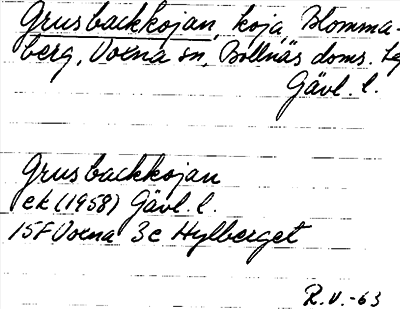 Grusbackkojan, koja, Blomma-
berg, Voxna sn, Bollnäs doms. Lg
Gävl. l.
Grusbackkojan
ek (1958) Gävl l.
15F Voxna 3c Hylberget
R.V.-63